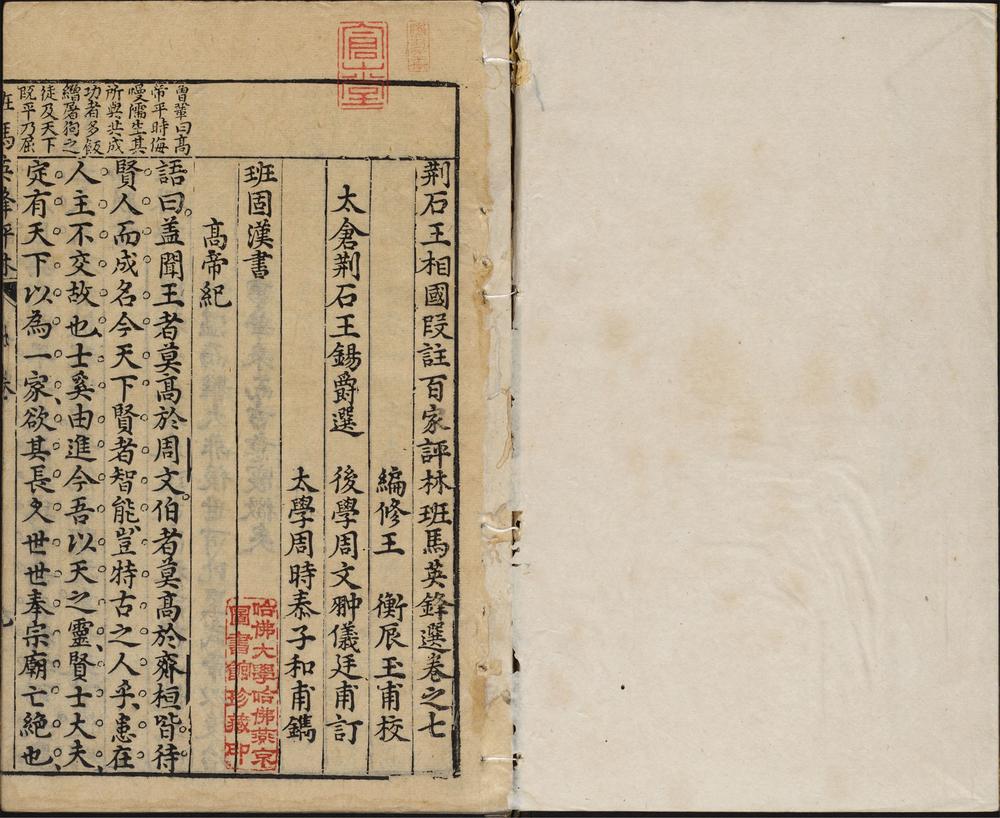 荆石王相國叚註百家評林班馬英鋒選卷之七
編修王　衡辰玉甫校
太倉荆石王錫爵選　後學周文翀儀廷甫訂
太學周時泰子和甫鐫
班固漢書
高帝紀
語曰盖聞王者莫高於周文伯者莫高於齊桓皆待
賢人而成名今天下賢者智能豈特古之人乎患在
人主不交故也士奚由進今吾以天之靈賢士大夫
定有天下以為一家欲其長久世世奉宗廟亡絶也
曾鞏曰高
帝平時侮
慢儒生其
所與共成
功者多飯
繒屠狗之
徒及天下
既平乃屈
班馬英鋒評林
卷
哈佛大學哈佛燕京
圖書館珍藏印